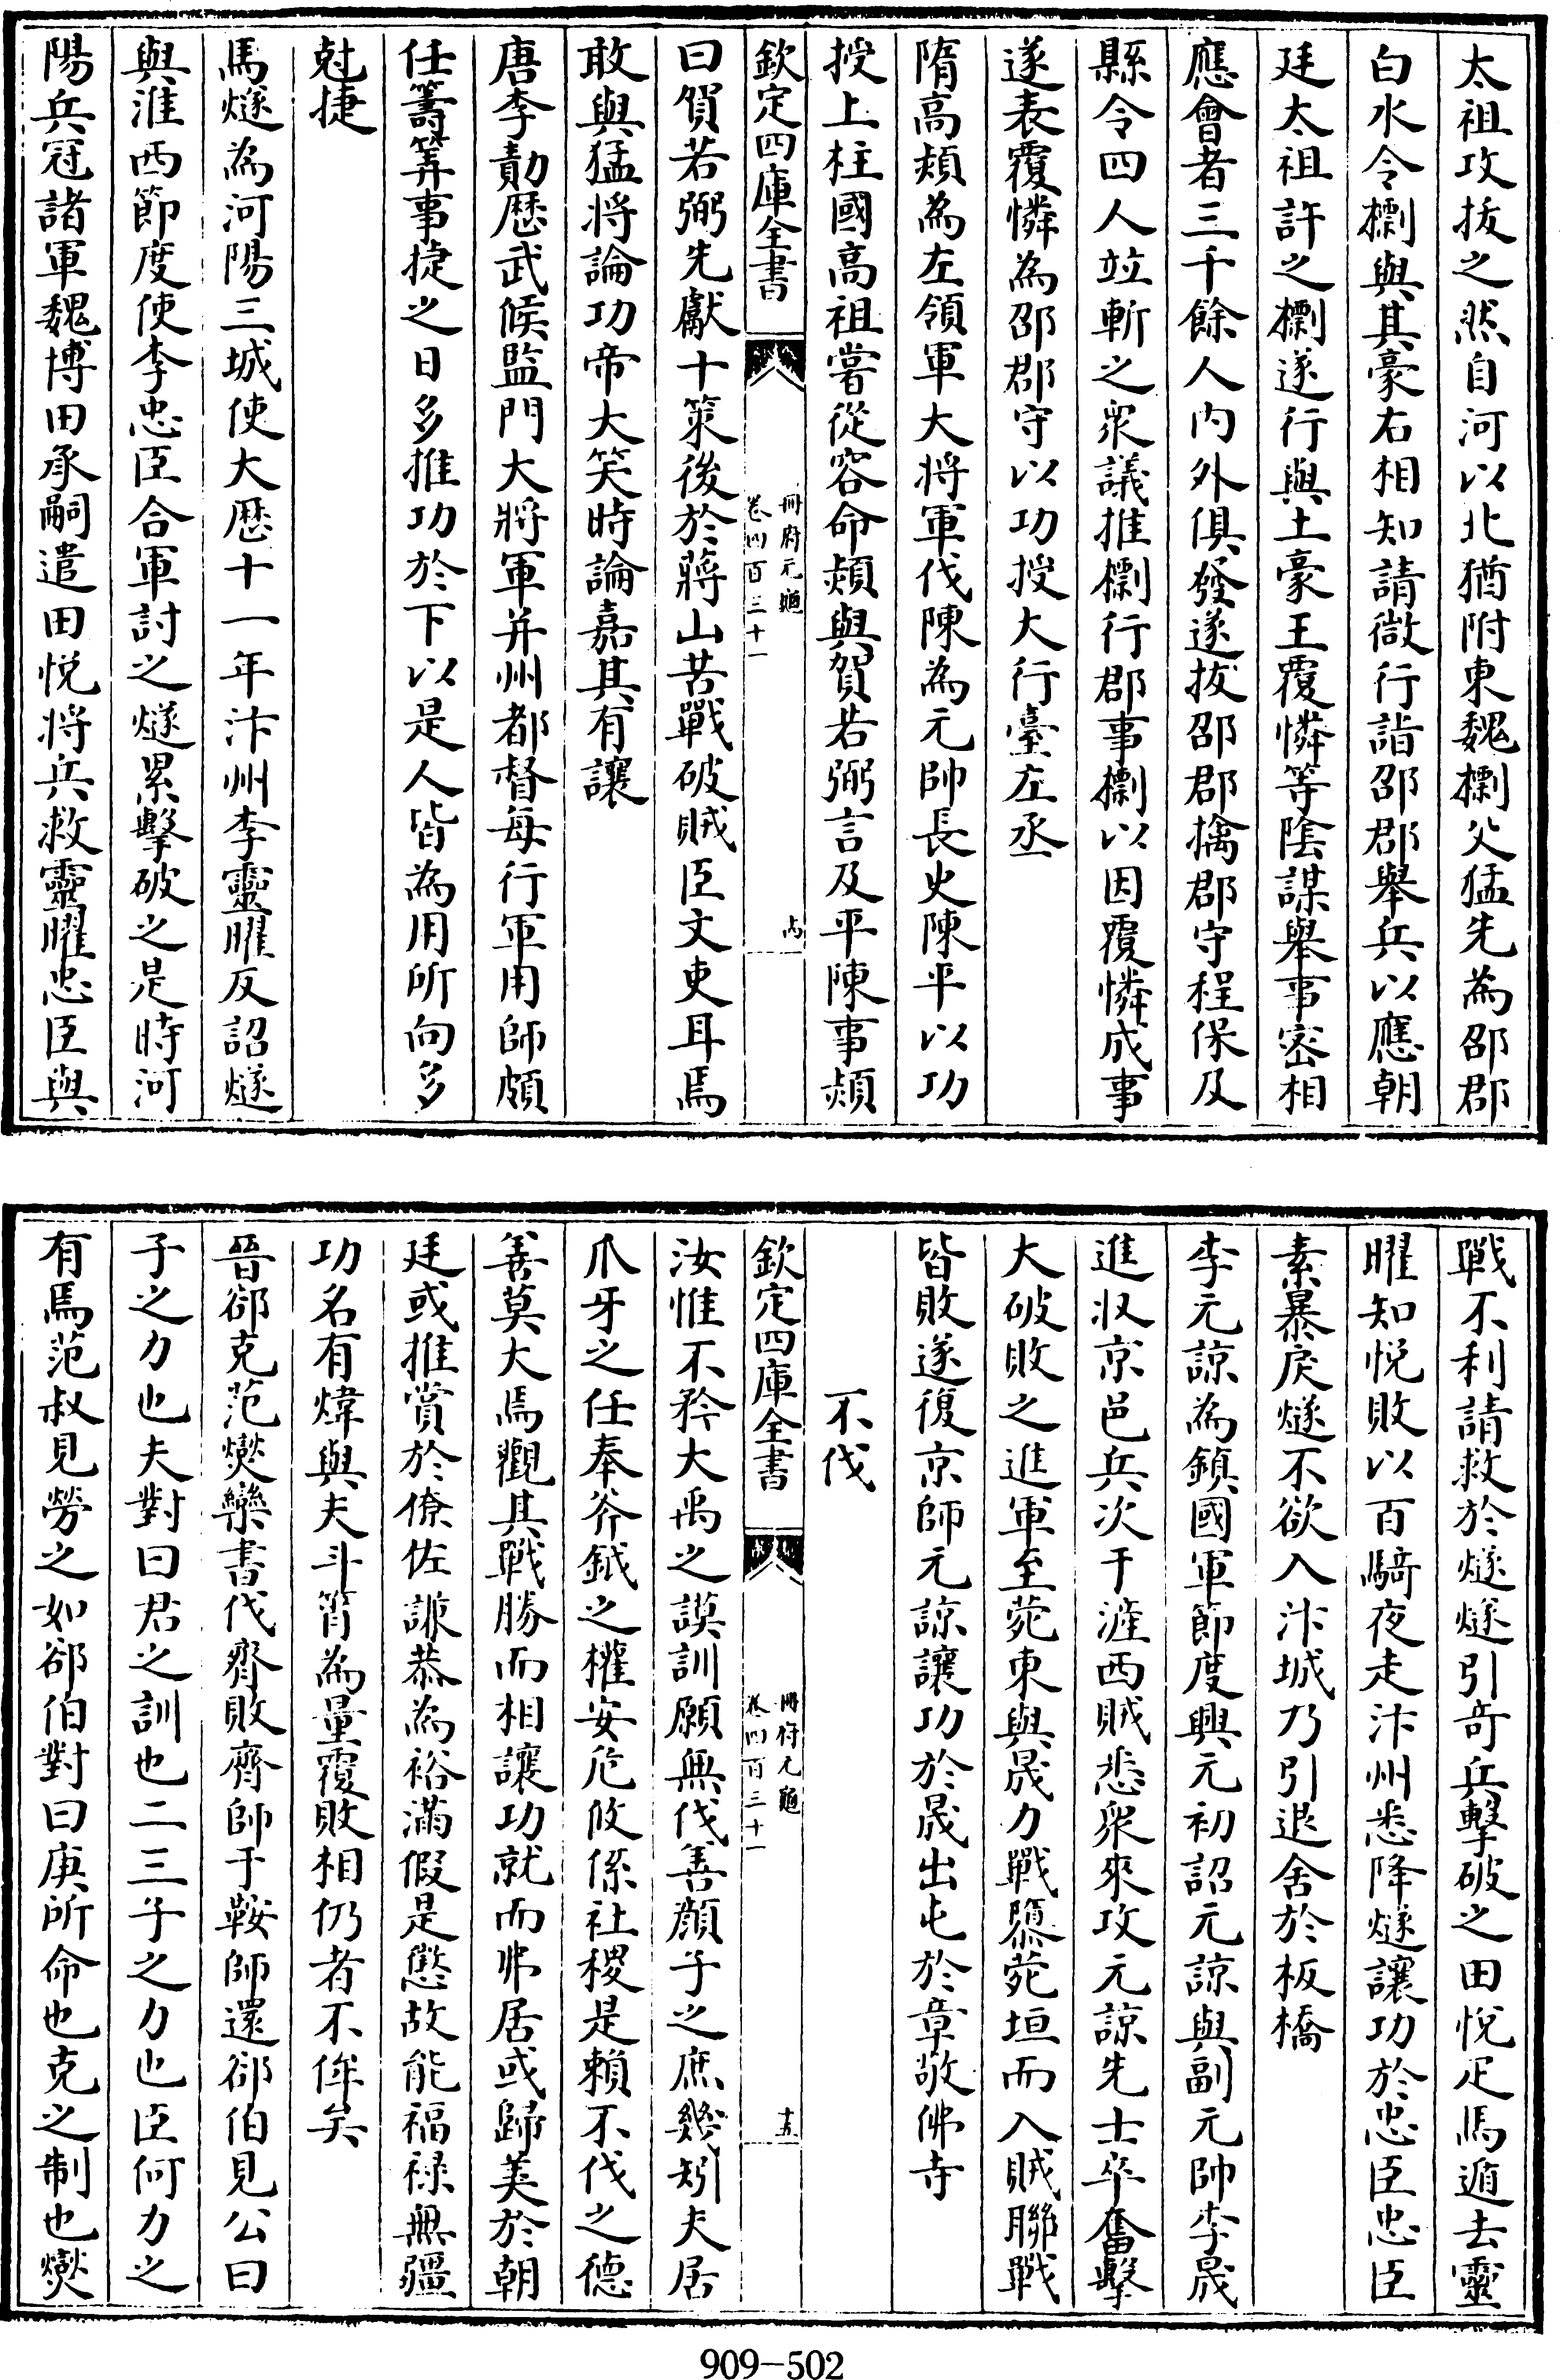 太祖攻拔之然自河以北猶附東魏㯹父猛先為邵郡
白水令㯹與其豪右相知請微行詣邵郡舉兵以應朝
廷太祖許之㯹遂行與土豪王覆憐等陰謀舉事密相
應會者三千餘人内外俱發遂拔邵郡擒郡守程保及
縣令四人竝斬之衆議推㯹行郡事㯹以因覆憐成事
遂表覆憐為邵郡守以功授大行臺左丞
隋高熲為左領軍大將軍伐陳為元帥長史陳平以功
授上柱國高祖嘗從容命熲與賀若弼言及平陳事熲
欽定四庫全書
冊府元龜
卷四百三十一
曰賀若弼先獻十策後於蔣山苦戰破賊臣文吏耳焉
敢與猛將論功帝大笑時論嘉其有讓
唐李勣歴武候監門大將軍并州都督每行軍用師頗
任籌筭事捷之日多推功於下以是人皆為用所向多
尅捷
馬燧為河陽三城使大歴十一年汴州李靈曜反詔燧
與淮西節度使李忠臣合軍討之燧累擊破之是時河
陽兵冠諸軍魏博田承嗣遣田悦將兵救靈曜忠臣與
戰不利請救於燧燧引竒兵擊破之田悦疋馬遁去靈
曜知悦敗以百騎夜走汴州悉降燧讓功於忠臣忠臣
素暴戾燧不欲入汴城乃引退舍於板橋
李元諒為鎮國軍節度興元初詔元諒與副元帥李晟
進收京邑兵次于滻西賊悉衆來攻元諒先士卒奮擊
大破敗之進軍至苑東與晟力戰隳苑垣而入賊聯戰
皆敗遂復京師元諒讓功於晟出屯於章敬佛寺
不伐
欽定四庫全書
冊府元龜
卷四百三十一
十五
汝惟不矜大禹之謨訓願無伐善顔子之庶幾矧夫居
爪牙之任奉斧鉞之權安危攸係社稷是賴不伐之德
善莫大焉觀其戰勝而相讓功就而弗居或歸美於朝
廷或推賞於僚佐謙恭為裕滿假是懲故能福禄無疆
功名有煒與夫斗筲為量覆敗相仍者不侔矣
晉郤克范爕欒書伐齊敗齊師于鞍師還郤伯見公曰
子之力也夫對曰君之訓也二三子之力也臣何力之
有焉范叔見勞之如郤伯對曰庚所命也克之制也爕
909-502